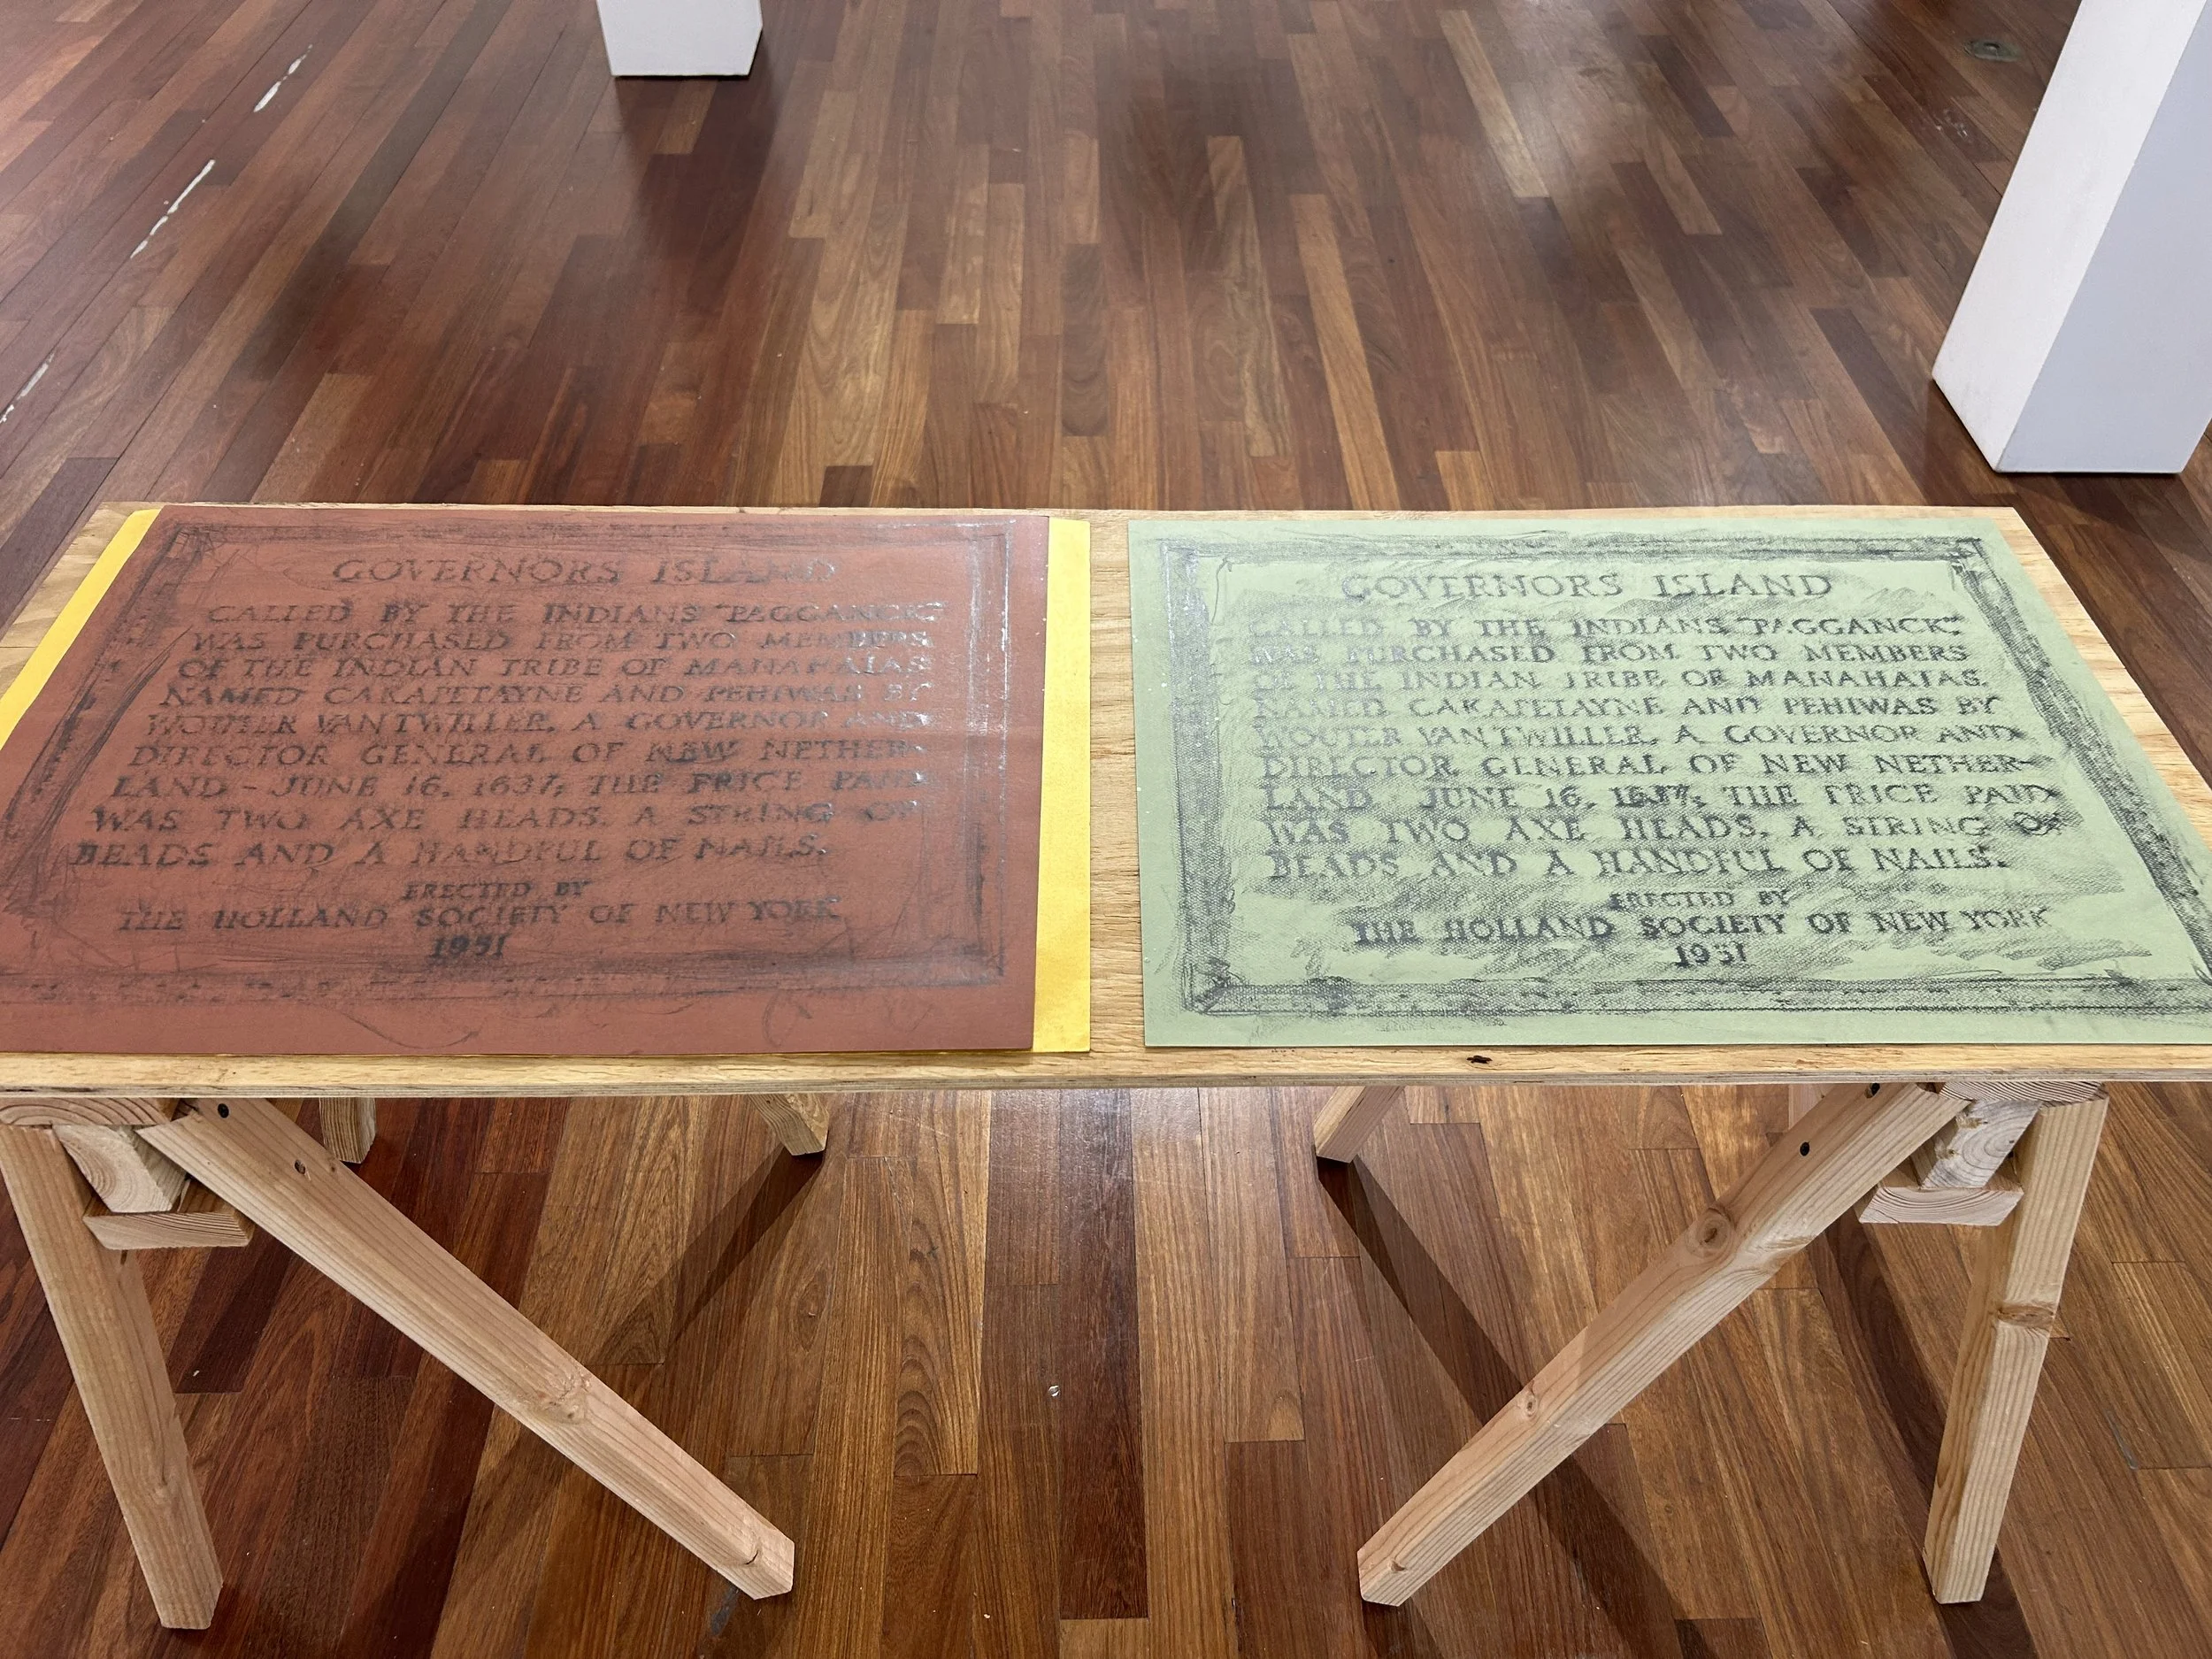 GOVERNORS ISLAND
CALLED BY THE INDIANS "PAGGANCK"
WAS PURCHASED FROM TWO MEMBERS
OF THE INDIAN TRIBE OF MANAHATAS
NAMED CAKAPETAYNE AND PEHIWAS BY
WOUTER VAN TWILLER, A GOVERNOR AND
DIRECTOR GENERAL OF NEW NETHER-
LAND - JUNE 16, 1637; THE PRICE PAID
WAS TWO AXE HEADS, A STRING OF
BEADS AND A HANDFUL OF NAILS.
ERECTED BY
THE HOLLAND SOCIETY OF NEW YORK
1951
GOVERNORS ISLAND
CALLED BY THE INDIANS "PAGGANCK"
WAS PURCHASED FROM TWO MEMBERS
OF THE INDIAN TRIBE OF MANAHATAS.
NAMED CAKAPETAYNE AND PEHIWAS BY
WOUTER VAN TWILLER, A GOVERNOR AND
DIRECTOR GENERAL OF NEW NETHER-
LAND JUNE 16, 1637; THE PRICE PAID
WAS TWO AXE HEADS, A STRING OF
BEADS AND A HANDFUL OF NAILS.
ERECTED BY
THE HOLLAND SOCIETY OF NEW YORK
1951